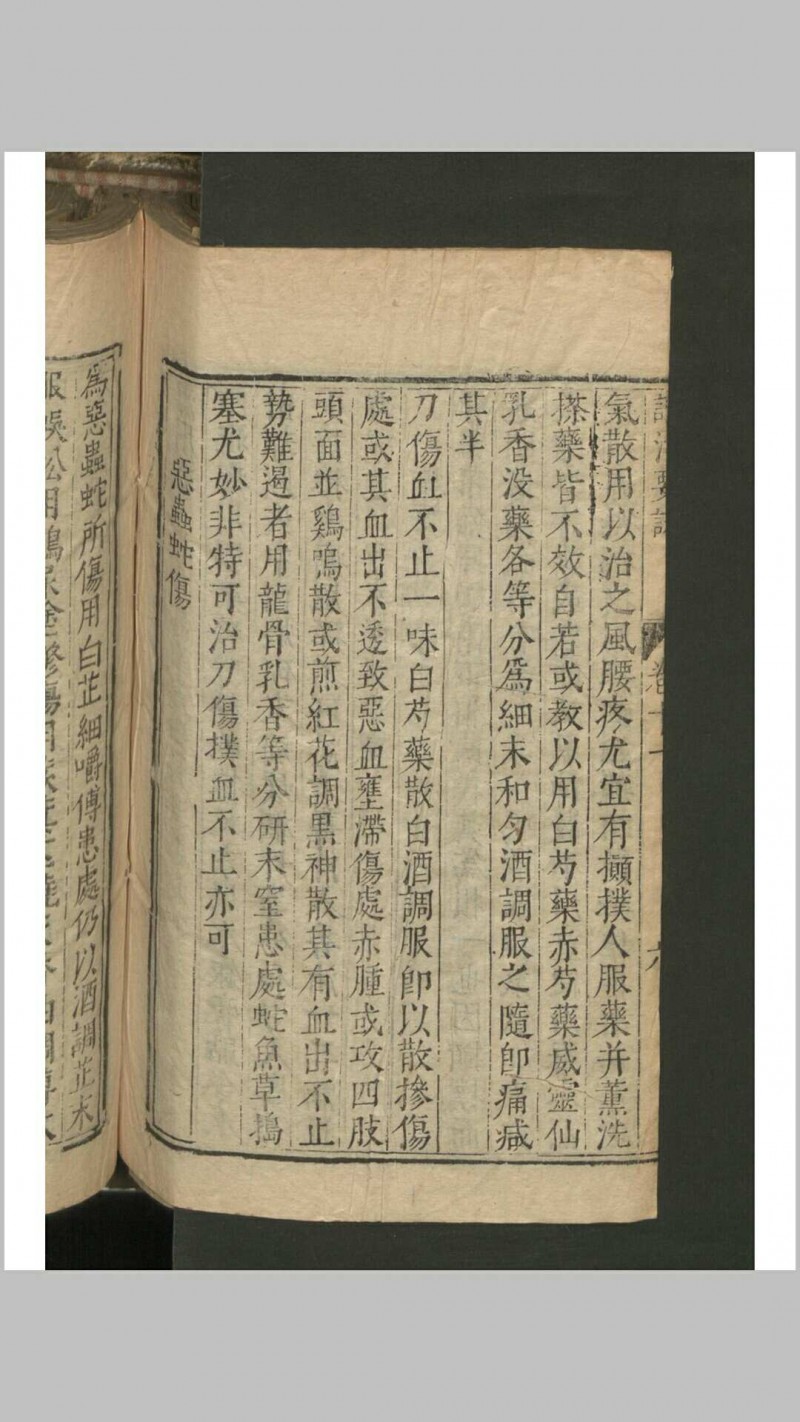 卷十
氣散用以治之風腰疼尤宜有攧撲人服藥并薰洗
搽藥皆不效自若或教以用白芍藥赤芍藥威靈仙
乳香没藥各等分爲細末和勻酒調服之隨卽痛减
其半
刀傷血不止一味白芍藥散白酒調服卽以散摻傷
處或其血出不透致惡血壅滯傷處赤腫或攻四肢
頭面並鷄鳴散或煎紅花調黑神散其有血出不止
勢難遏者用龍骨乳香等分研末窒患處蛇魚草搗
塞尤妙非特可治刀傷撲血不止亦可
惡蟲蛇傷
爲惡蟲蛇所傷用白芷細嚼傅患處仍以酒調芷末
服蜈蚣用鷄